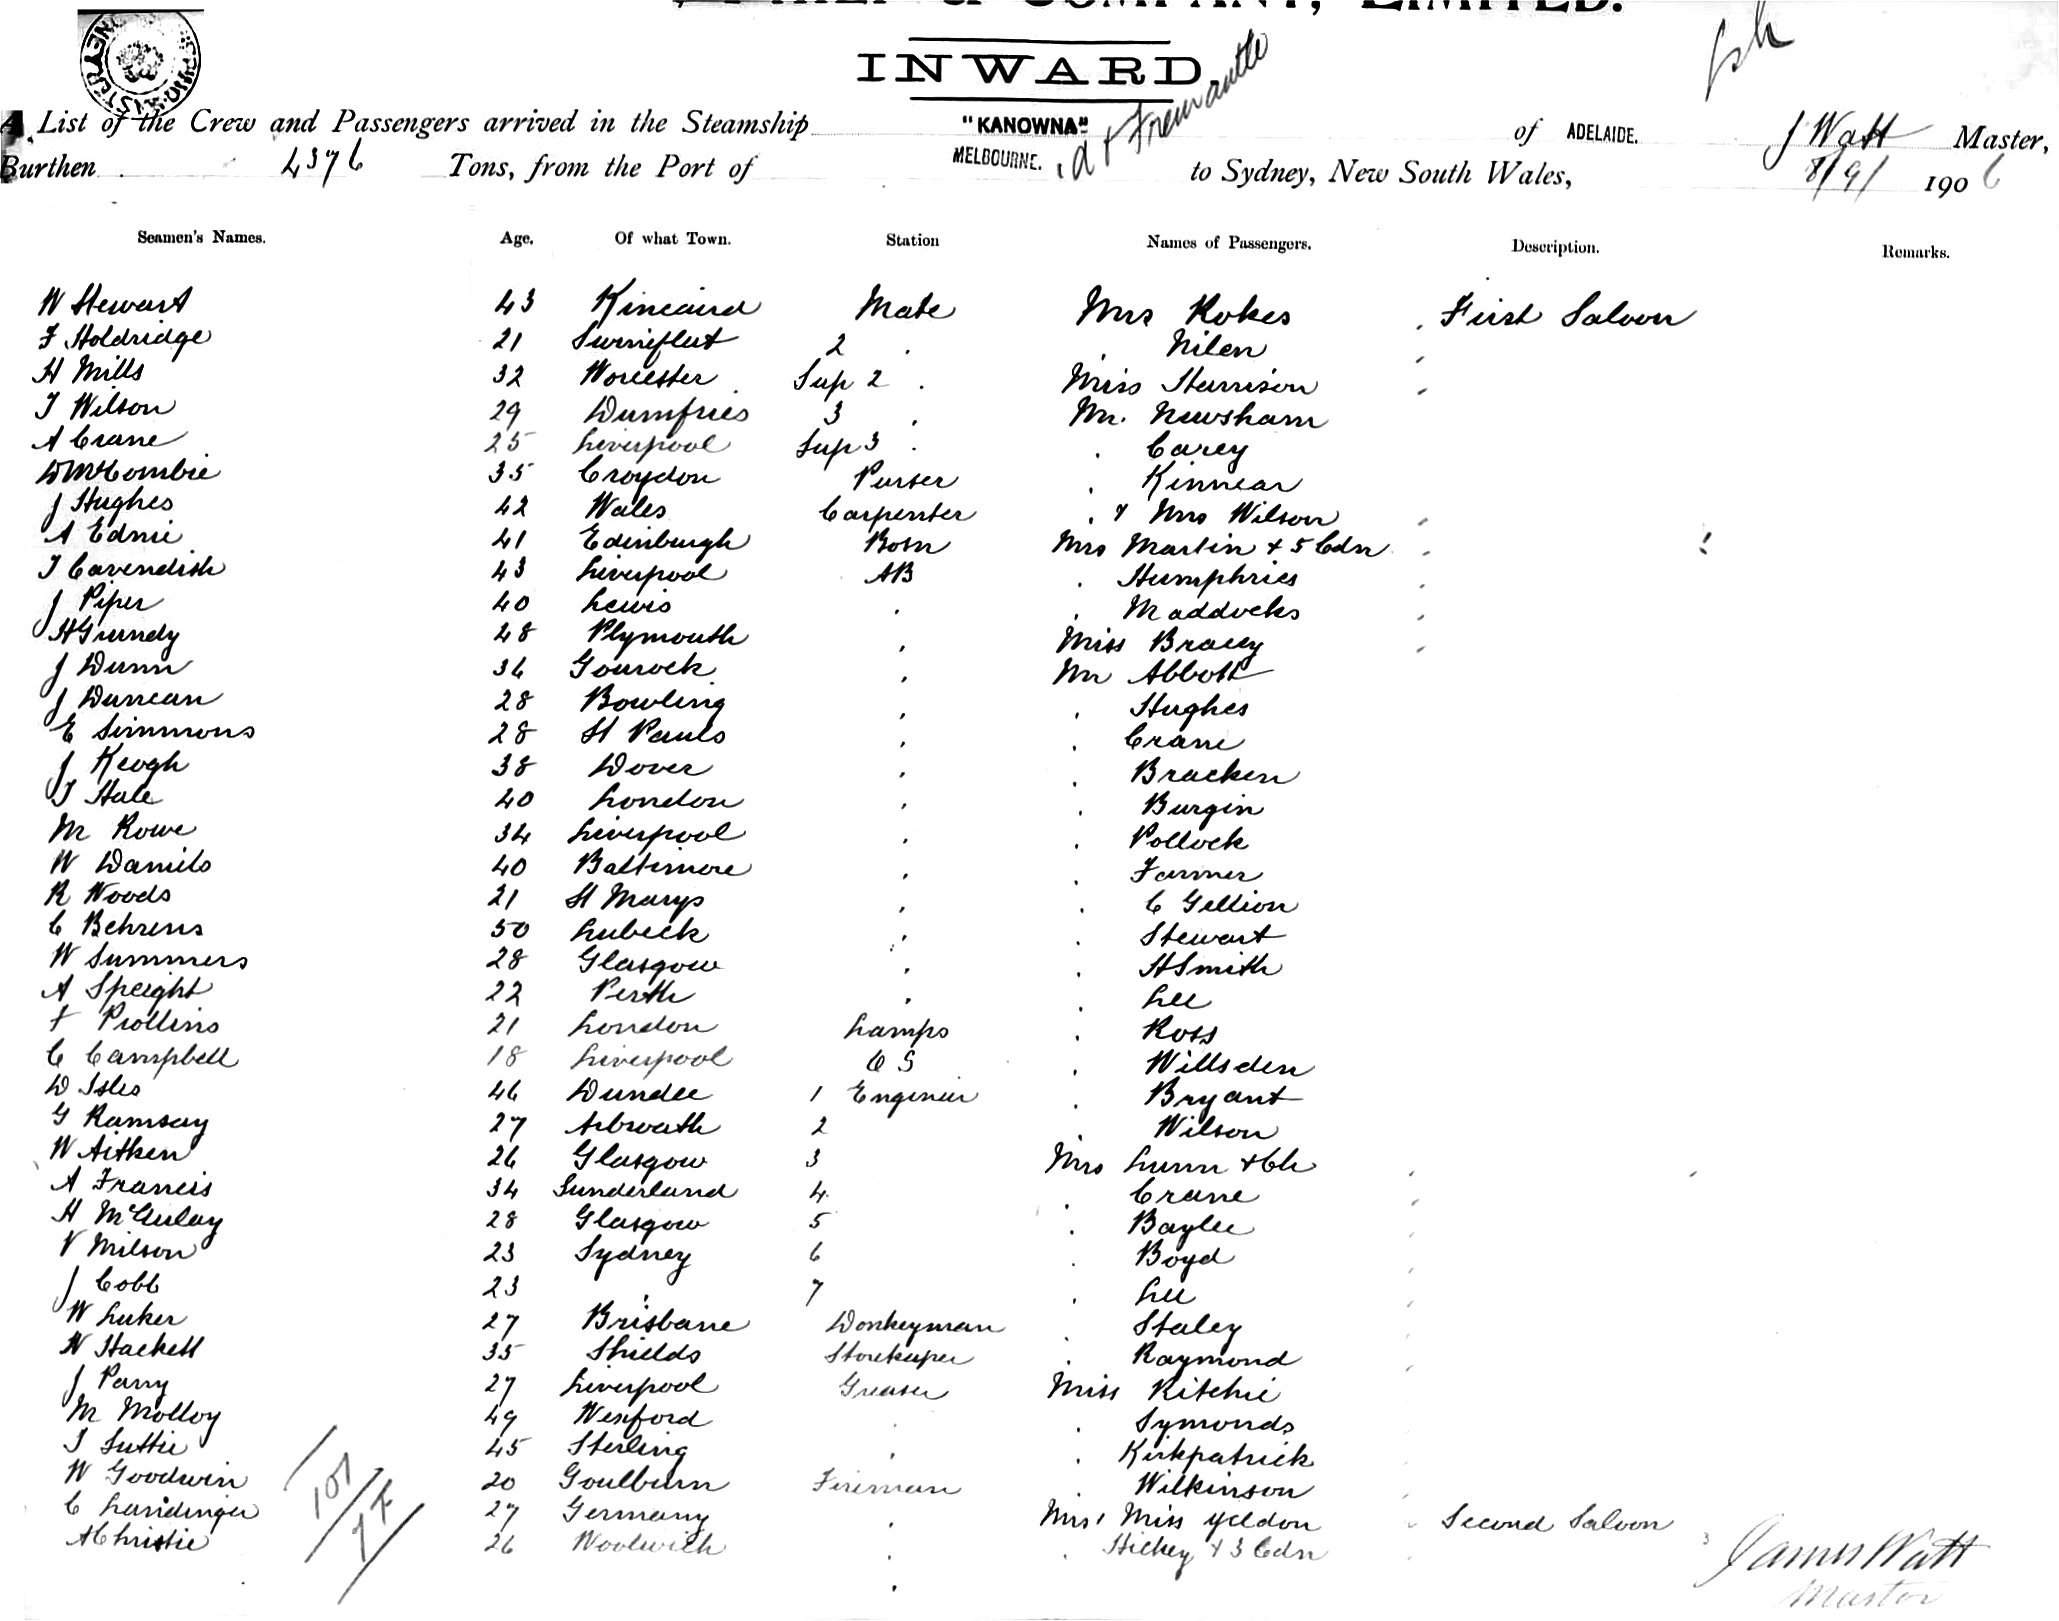 & COMPANY, LIMITED.
INWARD,
A List of the Crew and Passengers arrived in the Steamship "KANOWNA" of ADELAIDE. J Watt Master,
Burthen 4376 Tons, from the Port of MELBOURNE. & Fremantle to Sydney, New South Wales, 8/9/ 1906
Seamen's Names. Age. Of what Town. Station Names of Passengers. Description. Remarks.
W Stewart 43 Kincaird Mate Mrs Rokes First Saloon
F Holdridge 21 Swineflut 2 Nilen
H Mills 32 Worcester Sup 2 Miss Harrison
T Wilson 29 Dumfries 3 Mr. Newsham
A Crane 25 Liverpool Sup 3 Carey
D McCombie 35 Croydon Purser Kinnear
J Hughes 42 Wales Carpenter & Mrs Wilson
A Edmie 41 Edinburgh Bosn Mrs Martin + 5 Cdn
T Cavendish 43 Liverpool AB Humphries
J Piper 40 Lewis Maddocks
H Grundy 48 Plymouth Miss Bracey
J Dunn 36 Gourock Mr Abbott
J Duncan 28 Bowling Hughes
E Simmons 28 St Pauls Crane
J Keogh 38 Dover Bracken
T Hale 40 London Burgin
M Rowe 34 Liverpool Pollock
W Daniels 40 Baltimore Farmer
R Woods 21 St Marys C Gellion
C Behrens 50 Lubeck Stewart
W Summers 28 Glasgow H Smith
A Speight 22 Perth Lee
F Prollins 21 London Lamps Ross
C Campbell 18 Liverpool O S Willsden
D Isles 46 Dundee 1 Engineer Bryant
G Ramsay 27 Arbroath 2 Wilson
W Aitken 26 Glasgow 3 Mrs Lunn + Ch
A Francis 34 Sunderland 4 Crane
H McAulay 28 Glasgow 5 Baylee
V Milson 23 Sydney 6 Boyd
J Cobb 23 7 Lee
W Luker 27 Brisbane Donkeyman Staley
W Hackett 35 Shields Storekeeper Raymond
J Parry 27 Liverpool Greaser Miss Ritchie
M Molloy 49 Wexford Symonds
T Suttie 45 Sterling Kirkpatrick
W Goodwin 20 Goulburn Fireman Wilkinson
C Laridinger 27 Germany Mrs, Miss Yeldon Second Saloon
A Christie 26 Woolwich Hickey + 3 Cdn
James Watt
Master